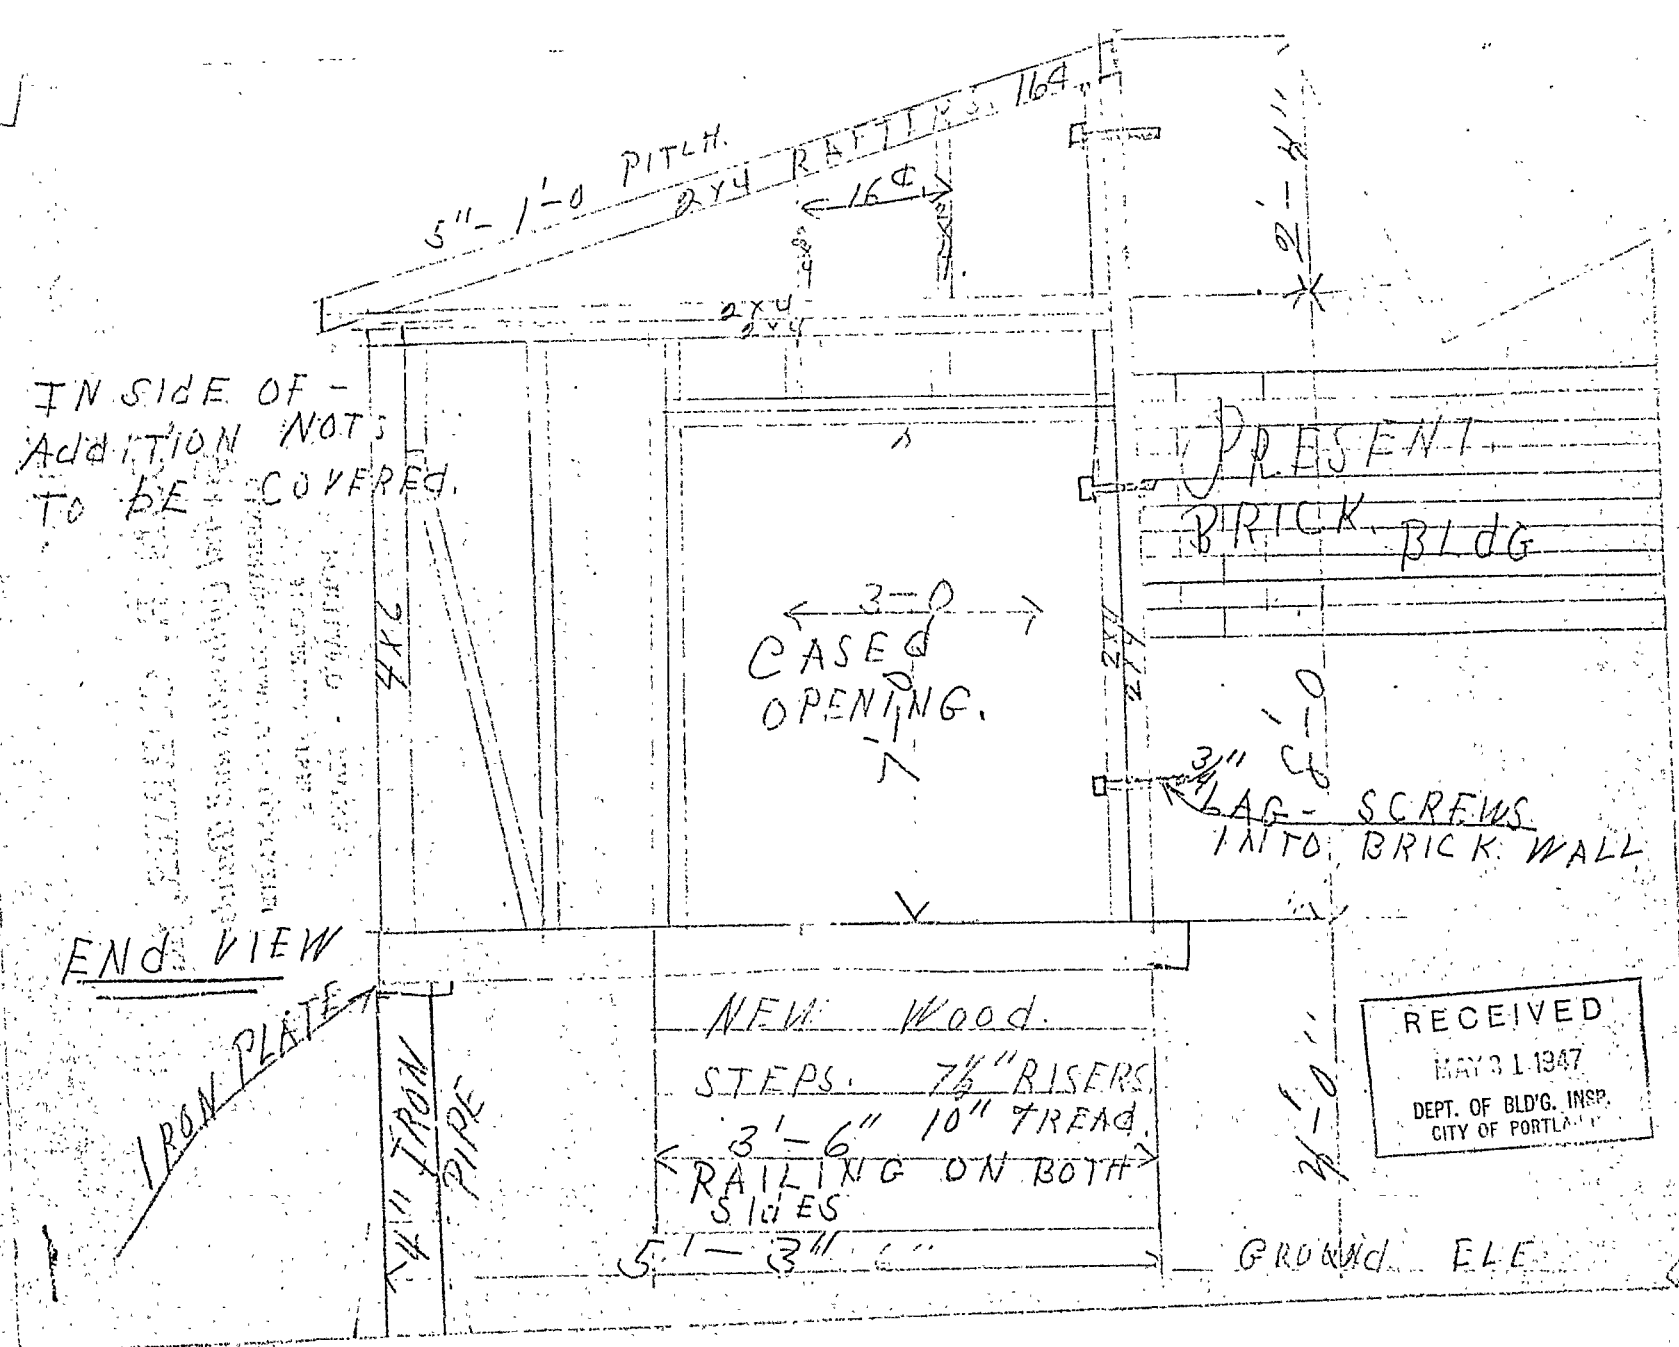 5"- 1'-0 PITCH.
2x4 RAFTERS. 16¢
16¢
2x4
2x4
2'-4"
2x4
2x4
INSIdE OF -
AddITION NOT
TO bE COVERED.
PRESENT
BRICK. BLdG
4x6
3-0
CASEd
OPENING.
7-0
2x4
2x4
8'-0
3/4"
LAG- SCREWS
INTO BRICK WALL
ENd VIEW
IRON PLATE
4" IRON
PIPE
NEW Wood.
STEPS. 7½" RISERS.
10" TREAd.
3'-6"
RAILING ON BOTH
SIdES
5'-3"
4'-0"
GROUNd ELE
RECEIVED
MAY 31 1947
DEPT. OF BLD'G. INSP.
CITY OF PORTLAND